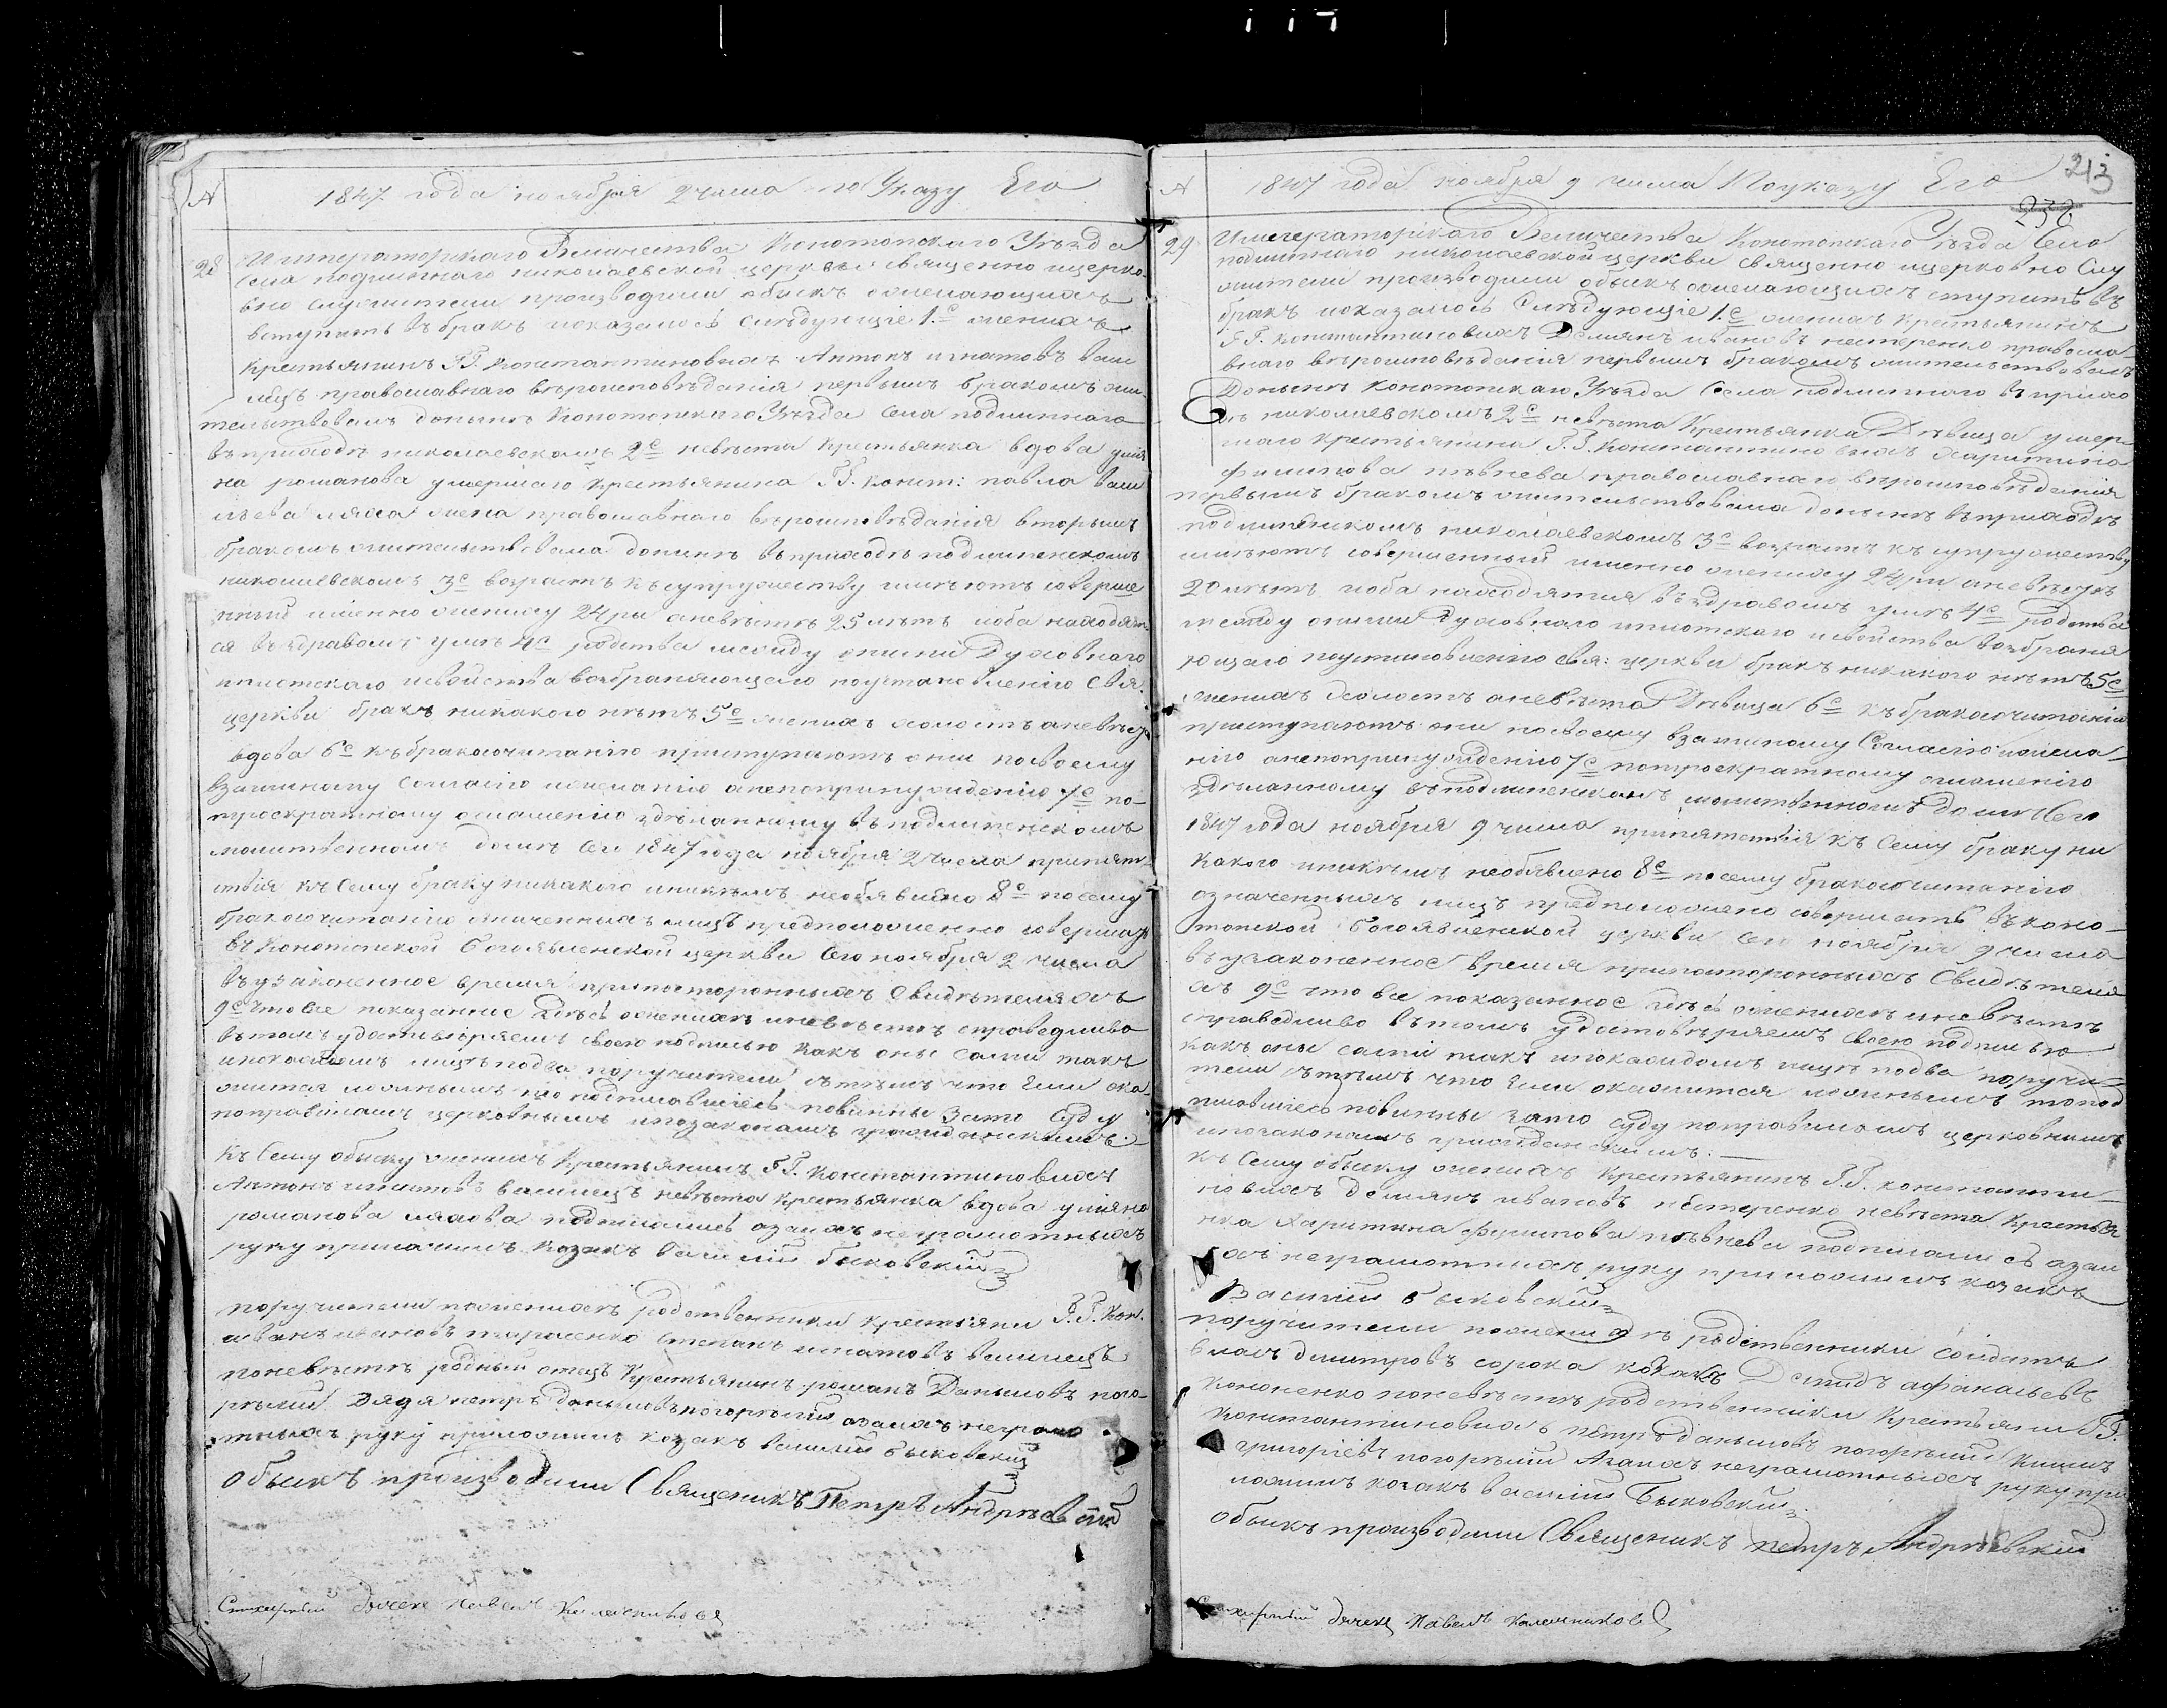 № 1847 года ноября 2 числа по Указу Его
28 Императорскаго Величества Конотопскаго Уѣзда
Села подлипнаго николаевской церкви священно ицерко
вно служители производили обыскъ ожелающихъ
вступить въ бракъ показалось слѣдующіе 1.е женихъ
Крестьянинъ ГГ. Константиновихъ Антонъ игнатовъ
православнаго вѣроисповѣданія первымъ бракомъ жи
тельствовалъ донынѣ Конотопскаго Уѣзда Села подлипнаго
въ приходѣ николаевскомъ 2е невѣста Крестьянка вдова улія
на романова умершаго Крестьянина ГГ. Конст: павла васи
льева ляха жена православнаго вѣроисповѣданія вторымъ
бракомъ жительствовала донинѣ въ приходѣ подлипенскомъ
николаевскомъ 3е возрастъ къ супружеству имѣютъ соверше
нный имѣнно жениху 24ри аневѣстѣ 25 лѣтъ иоба находят
ся въ здравомъ умѣ 4е родства между оними Духовнаго
иплотскаго исвойства возбраняющаго поустановленію Свя.
церкви бракъ никакого нѣтъ 5е женихъ холостъ аневѣста
вдова 6е къ бракосочитанію приступаютъ они посвоему
взаимному согласію ижеланію анепопринуждению 7е по-
троекратному оглашенію здѣланному въ подлипенскомъ
молитвенномъ домѣ сего 1847 года ноября 2 числа препят
ствія къ сему браку никакого иникимъ необявлено 8е посему
бракосочитанію значенихъ лицъ предположенно совершить
въ Конотопской богоявленской церкви Сего ноября 2 числа
въ узаконенное время припосторонныхъ Свидѣтеляхъ
9е что все показанное здѣсь оженихѣ иневѣстѣ справедливо
въ томъ удостовѣряемъ своею подписью какъ оны сами такъ
покаждомъ лицѣ подва поручители стѣмъ что Если ока
жится ложнымъ то подписавшіесь повинны зато Суду
поправиламъ церковнымъ ипозаконамъ гражданскимъ.
Къ Сему обыску женихъ Крестьянинъ ГГ. Константиновихъ
Антонъ игнатовъ невѣста Крестьянка вдова уліяна
романова ляхова подписались азаихъ неграмотныхъ
руку приложилъ козакъ Василій быковскій
поручители поженихѣ родственники крестьяни ГГ. Кон.
иванъ ивановъ тарасенко степанъ игнатовъ
поневѣстѣ родный отецъ Крестьянинъ романъ Даныловъ пого
рѣлий дядя петръ даныловъ погорѣлий азаихъ неграмо
тныхъ руку приложилъ козакъ василий быковскій
обыскъ производили Священикъ Петръ Андрѣевскій
Стихарный дячекъ Павелъ Калашниковъ
213
№ 1847 года ноября 9 числа Поуказу Его
238
29 Императорскаго Величества Конотопскаго Уѣзда Села
подлипнаго николаевской церкви священно ицерковно Слу
жители производили обыскъ ожелающихъ ступить въ
бракъ показалось Слѣдующіе 1.е женихъ крестьянинъ
ГГ. константиновихъ Демянъ ивановъ нестеренко правосла
внаго вѣроисповѣдания первымъ бракомъ жительствовалъ
Донынѣ Конотопскаго Уѣзда Села подлипного въ прихо
дѣ николаевскомъ 2е невѣста Крестьянка Дѣвица умер
шаго крестьянина ГГ. Константиновихъ харитина
филипова пѣвнева православнаго вѣроисповѣданія
первымъ бракомъ жительствовала донынѣ въ приходѣ
подлипенскомъ николаевскомъ 3е возрастъ къ супружеству
имѣютъ совершенный имѣнно жениху 24ри аневѣстѣ
20 лѣтъ иоба находятся въ здравомъ умѣ 4е родства
между оними Духовнаго иплотскаго исвойства возбраня
ющаго поустановленію свя: церкви бракъ никакого нѣтъ 5е
женихъ холостъ аневѣста Дѣвица 6е къ бракосочитанію
приступаютъ они посвоему взаимному Согласію ижела
нію анепопринуждению 7е потроекратному оглашенію
здѣланному въ подлипенскомъ молитвенномъ Домѣ Сего
1847 года ноября 9 числа препятствія къ Сему браку ни
какого иникимъ необявлено 8е посему бракосочитанію
означенныхъ лицъ предположено совершить въ коно
топской богоявленской церкви Сего ноября 9 числа
въ узаконенное время припосторонныхъ Свидѣтеля
хъ 9е что все показанное здѣсь оженихѣ иневѣстѣ
справедливо въ томъ удостовѣряемъ своею подписью
какъ оны сами такъ ипокаждомъ лицѣ подва поручи
тели стѣмъ что Если окажится ложнымъ топод
писавшіесь повинны зато суду поправиламъ церковнымъ
ипозаконамъ гражданскимъ.
къ Сему обыску женихъ Крестьянинъ ГГ. константи
новихъ Демянъ ивановъ нестеренко невѣста Крестья
нка Харитина филипова пѣвнева подписались азаи
хъ неграмотнихъ руку приложилъ козакъ
Василій быковскій
поручители поженихѣ родственники солдатъ
власъ димитровъ сорока козакъ Демидъ афанасьевъ
кононенко поневѣстѣ родственники Крестьяни ГГ.
Константиновихъ петръ даныловъ погорѣлий
григоріевъ погорѣлий Азаихъ неграмотныхъ руку при
ложилъ козакъ василий Быковскій
обыскъ производили Священикъ петръ Андрѣевскій
Стихарный дячекъ Павелъ Калашниковъ